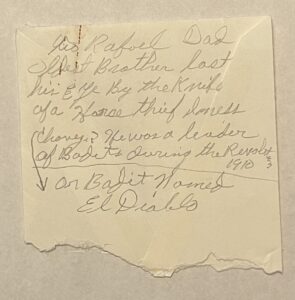 Tio Rafael Dad
Oldest Brother lost
his Eye By the Knife
of a Horse thief
Chavez? He was a leader
of Badits during the Revolut
1910
or Badit Named
El Diablo